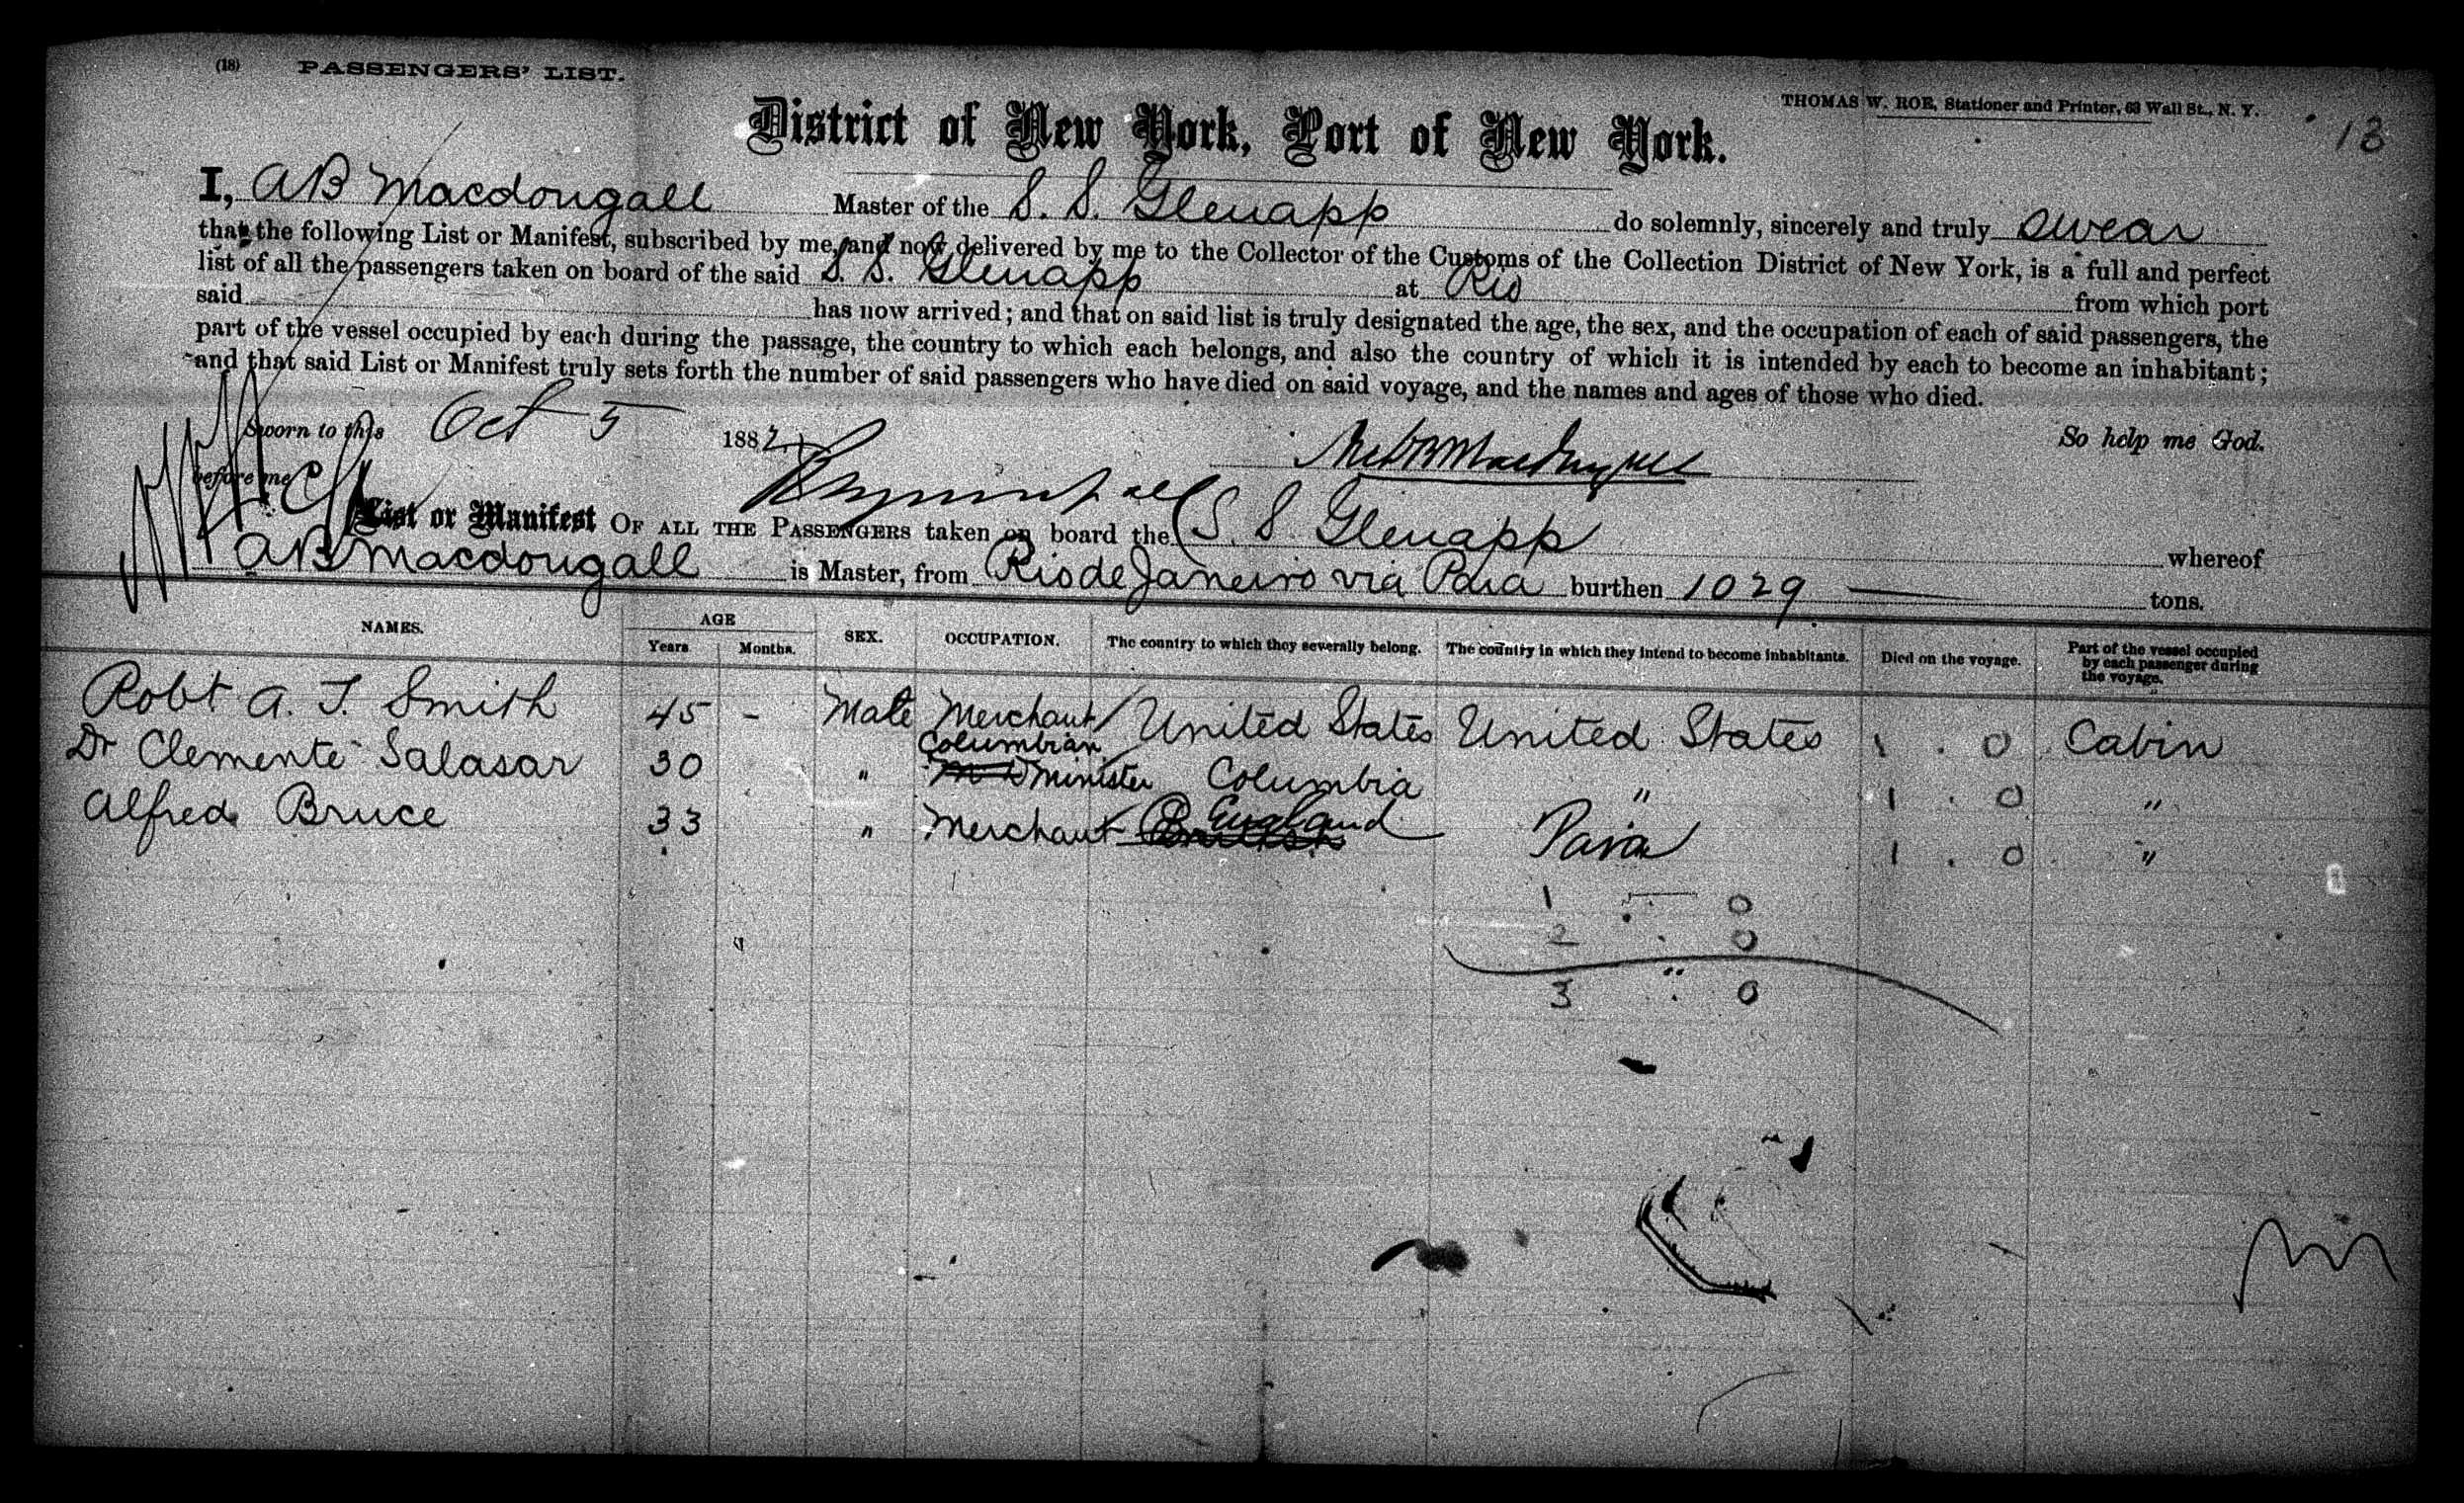 (18) PASSENGERS' LIST.
THOMAS W. ROE, Stationer and Printer, 63 Wall St., N. Y.
13
District of New York, Port of New York.
I, AB Macdougall Master of the S. S. Glenapp do solemnly, sincerely and truly swear
that the following List or Manifest, subscribed by me, and now delivered by me to the Collector of the Customs of the Collection District of New York, is a full and perfect
list of all the passengers taken on board of the said S. S. Glenapp at Rio from which port
said has now arrived; and that on said list is truly designated the age, the sex, and the occupation of each of said passengers, the
part of the vessel occupied by each during the passage, the country to which each belongs, and also the country of which it is intended by each to become an inhabitant;
and that said List or Manifest truly sets forth the number of said passengers who have died on said voyage, and the names and ages of those who died.
Sworn to this Oct 5 1882 So help me God.
before me
List or Manifest OF ALL THE PASSENGERS taken on board the S. S. Glenapp whereof
AB Macdougall is Master, from Rio de Janeiro via Para burthen 1029 tons.
NAMES. AGE Years Months. SEX. OCCUPATION. The country to which they severally belong. The country in which they intend to become inhabitants. Died on the voyage. Part of the vessel occupied by each passenger during the voyage.
Robt A. T. Smith 45 - Male Merchant United States United States 1 . 0 Cabin
Dr Clemente Salasar 30 " Columbian Minister Columbia " 1 . 0 "
Alfred Bruce 33 " Merchant England Para 1 . 0 "
1 . 0
2 . 0
3 . 0